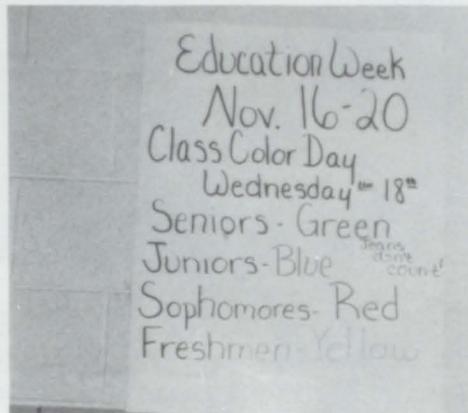 Education Week
Nov. 16-20
Class Color Day
Wednesday - 18th
Seniors - Green
Juniors - Blue Jeans don't count!
Sophomores - Red
Freshmen - Yellow